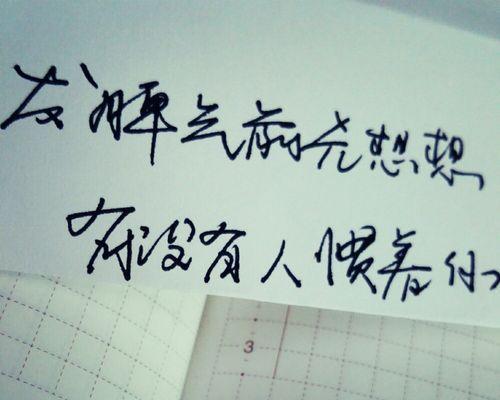 发脾气前先想想
有没有人惯着你
3